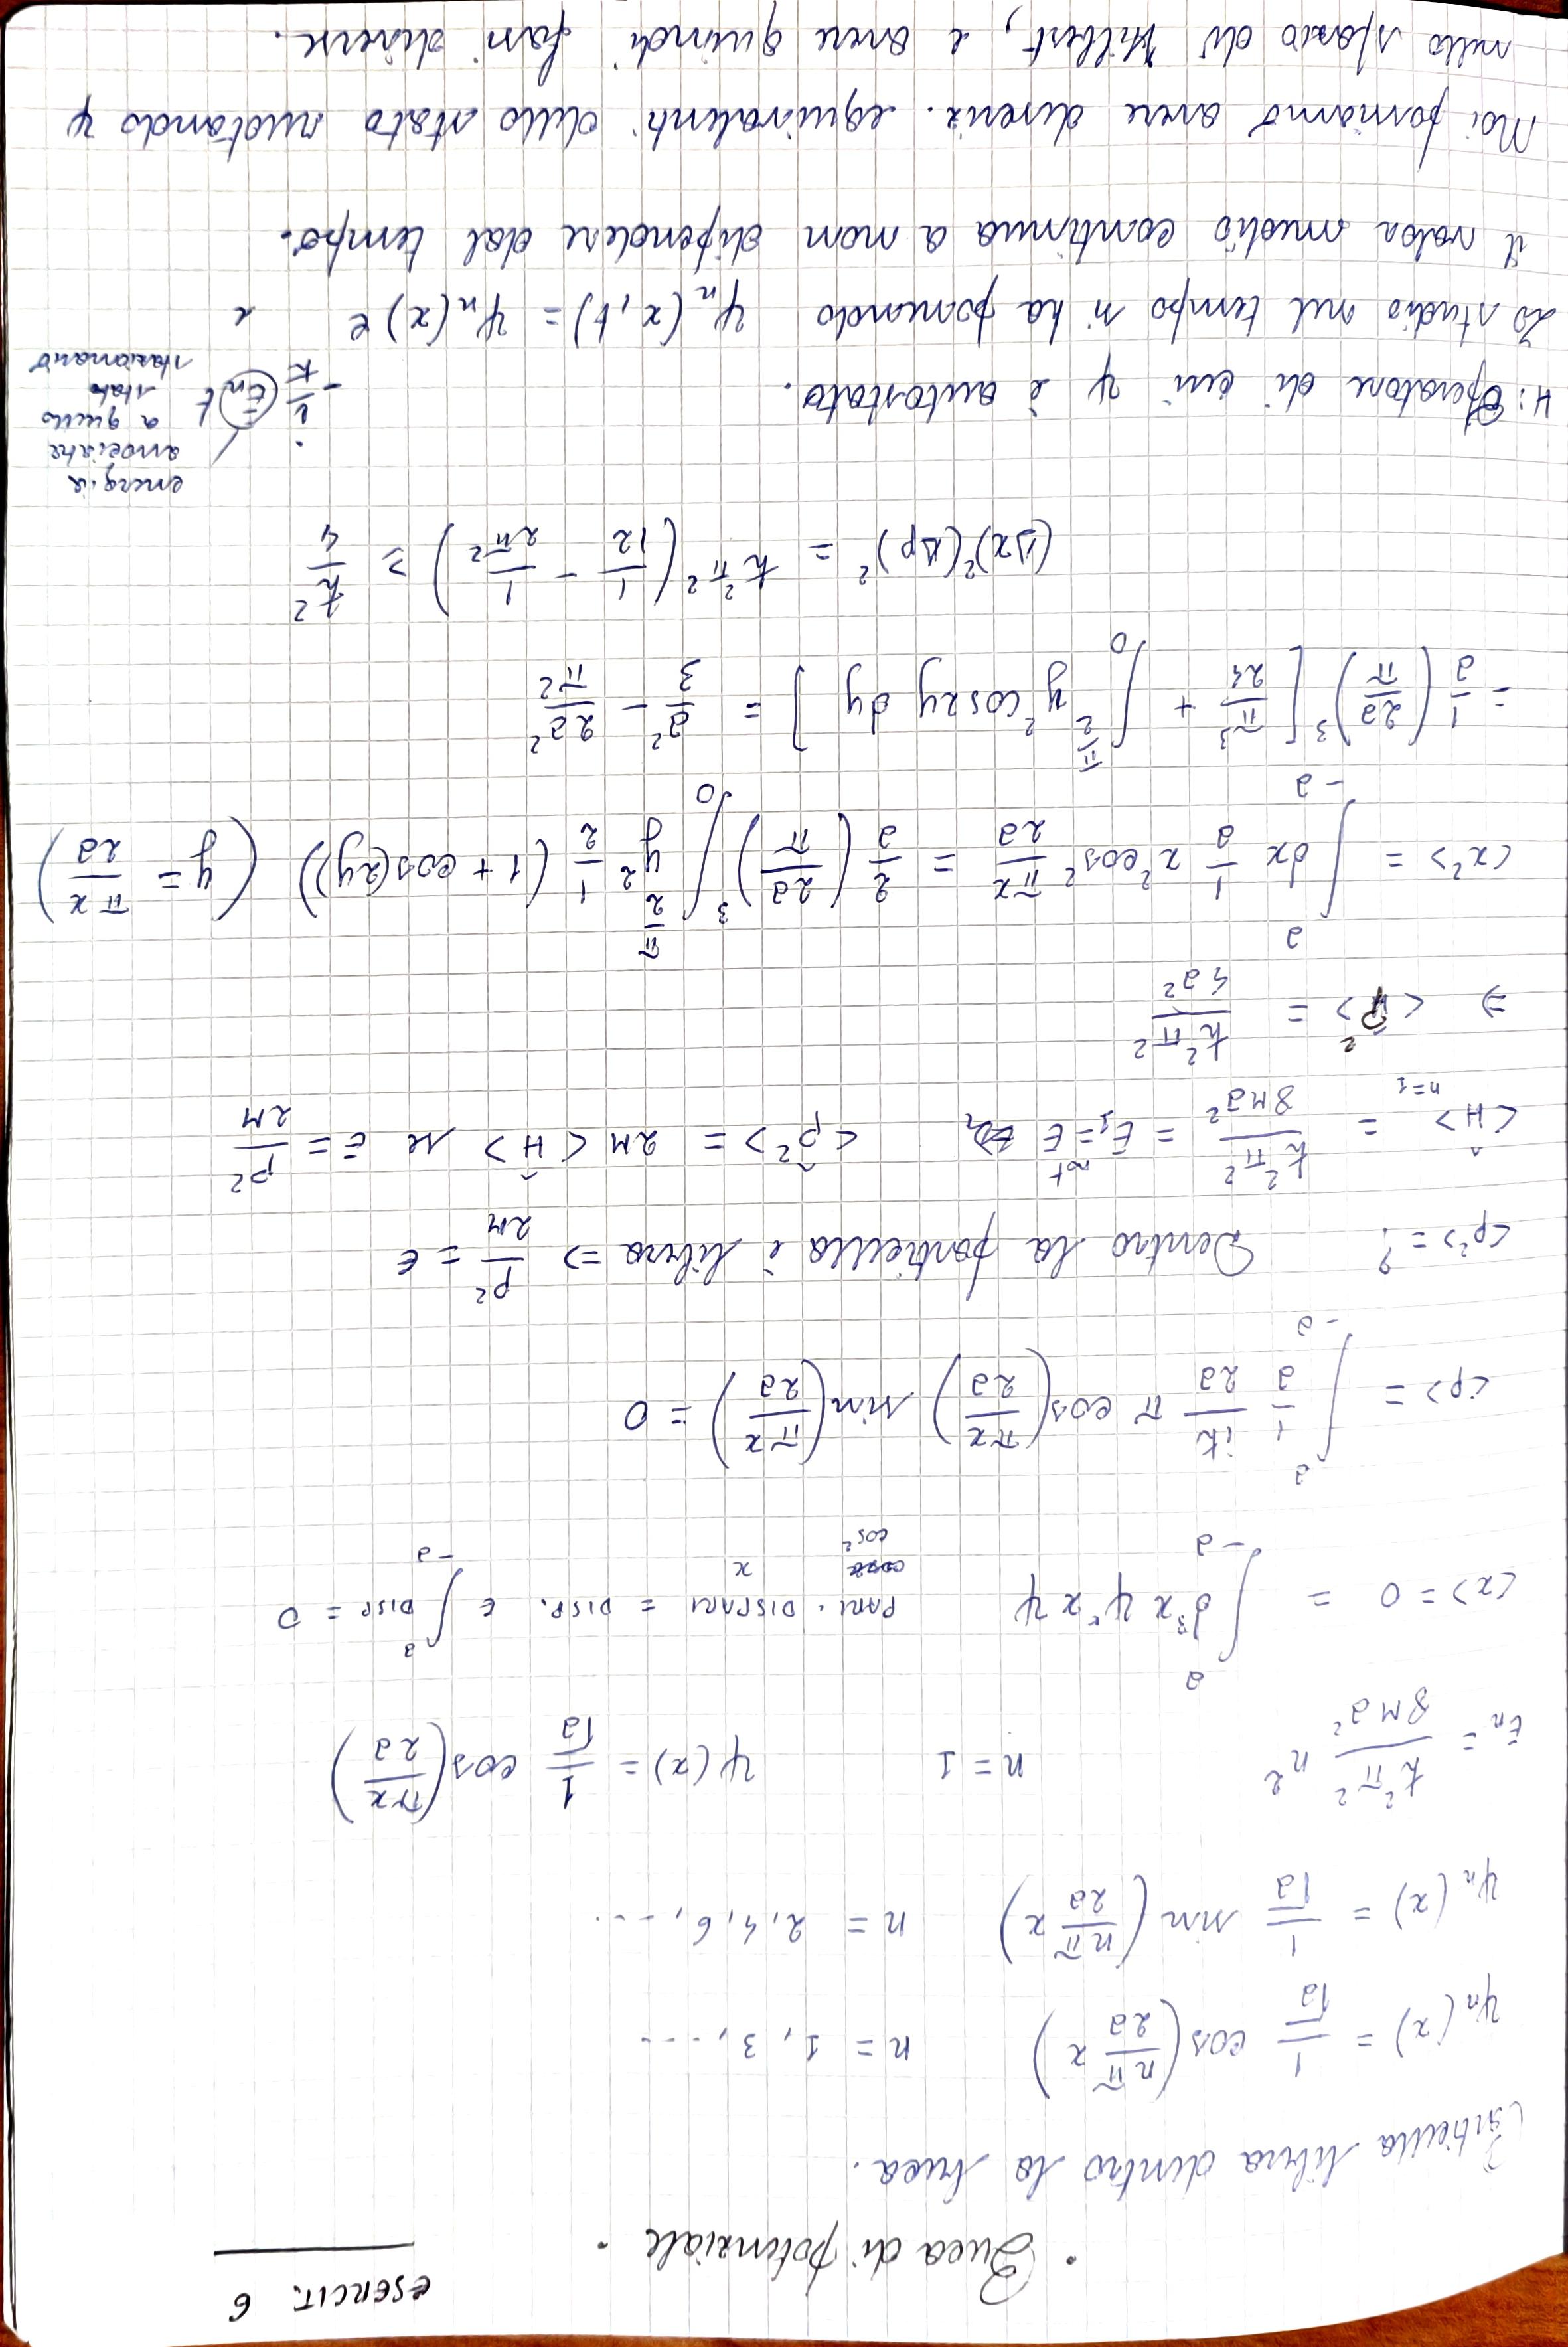 ESERCIT. 6
· Buca di potenziale ·
Particella libera dentro la buca.
ψₙ(x) = 1/√a cos(nπ/2a x)   n = 1, 3, ....
ψₙ(x) = 1/√a sin(nπ/2a x)   n = 2, 4, 6, ....
Eₙ = ħ²π²/8Ma² n²   n = 1   ψ(x) = 1/√a cos(πx/2a)
<x> = 0 = ∫_{-a}^{a} d³x ψ* x ψ   PARI · DISPARI = DISP. E ∫_{-a}^{a} DISP. = 0
cos²   x
<p> = ∫_{-a}^{a} 1/a iħ/2a π cos(πx/2a) sin(πx/2a) = 0
<p²> = ?   Dentro la particella è libera => p²/2M = E
<Ĥ>ₙ₌₁ = ħ²π²/8Ma² = E₁ =^{not} E   <p̂²> = 2M <Ĥ> se E = p²/2M
=> <p̂²> = ħ²π²/4a²
<x²> = ∫_{-a}^{a} dx 1/a x² cos² πx/2a = 2/a (2a/π)³ ∫_0^{π/2} y² 1/2 (1 + cos(2y))   (y = πx/2a)
= 1/a (2a/π)³ [π³/24 + ∫_0^{π/2} y² cos2y dy] = a²/3 - 2a²/π²
(Δx)²(Δp)² = ħ²π² (1/12 - 1/2π²) ≥ ħ²/4
H: Operatore di cui ψ è autostato.
Lo studio nel tempo si ha ponendo ψₙ(x,t) = ψₙ(x) e^{-i/ħ Eₙt} e
energia
associata
a quello
stato
stazionario
il valor medio continua a non dipendere dal tempo.
Noi possiamo avere descriz. equivalenti dello stato ruotando ψ
nello spazio di Hilbert, e avere quindi fasi diverse.